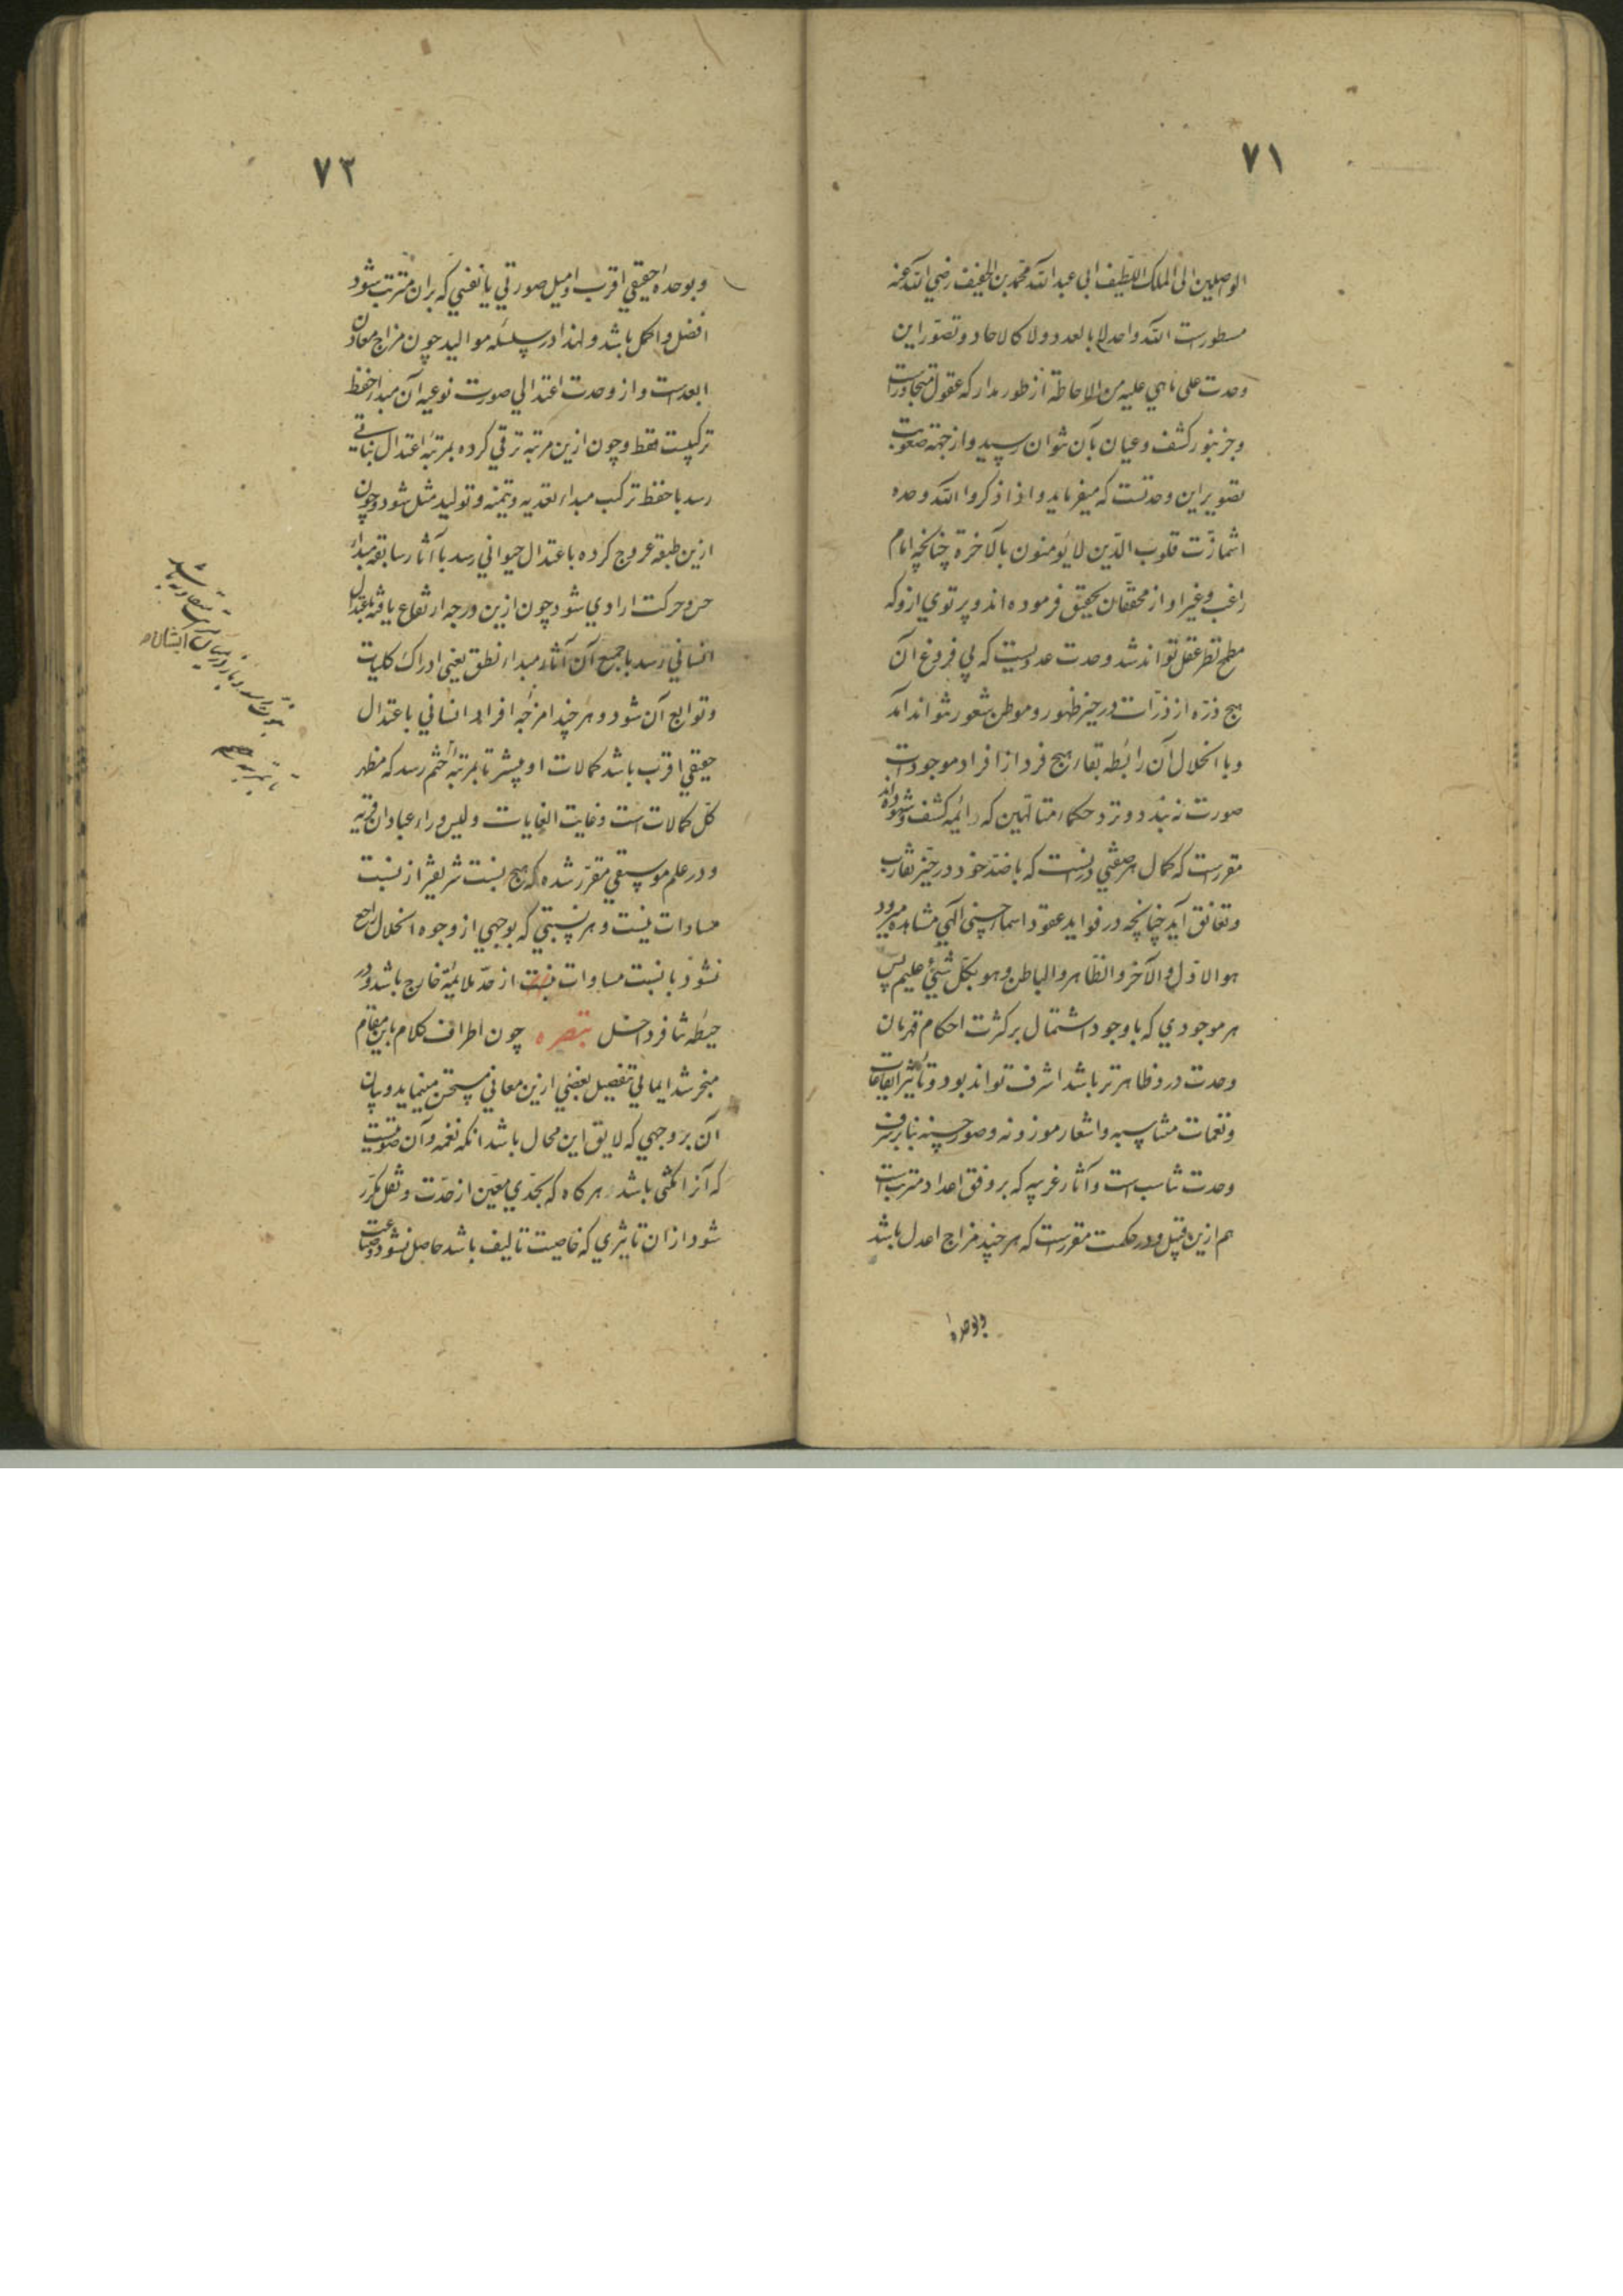 ٧١
الواصلین الی الملک اللطیف ابی عبد الله محمد بن الخفیف رضی الله عنه
مسطورست الله واحد لا بالعدد ولا کالاحاد و تصور این
وحدت علی ماهی علیه من الاحاطة از طور مدارکه عقول متجاوزست
و جز بنور کشف و عیان بآن نتوان رسید و از جهة صعوبت
تصویر این وحدتست که میفرماید و اذا ذکر الله وحده
اشمأزّت قلوب الذین لا یؤمنون بالآخرة چنانچه امام
راغب و غیر او از محققان تحقیق فرموده اند و پرتوی ازو که
مطمح نظر عقل تواند شد وحدت عددیست که بی فروغ آن
هیچ ذره از ذرّات در حیز ظهور و موطن شعور نتواند آمد
و با انحلال آن رابطه بقاء هیچ فرد از افراد موجودات
صورت نه بندد و نزد حکماء متألهین که ائمه کشف و شهود اند
مقررست که کمال هر صفتی در آنست که با ضد خود در حیّز تقارب
و تعانق آید چنانچه در فواید عقود اسماء حسنی الهی مشاهده میرود
هو الاول و الآخر و الظاهر و الباطن و هو بکل شئ علیم پس
هر موجودی که با وجود اشتمال بر کثرت احکام قهرمان
وحدت درو ظاهرتر باشد اشرف تواند بود و تأثیر ایقاعات
و نغمات متناسبه و اشعار موزونه و صور حسنه بنابر شرف
وحدت تناسب است و آثار غریبه که بر وفق اعداد مترتب است
هم ازین قبیل و در حکمت مقررست که هر چند مزاج اعدل باشد
و بوحدة
٧٢
و بوحدة حقیقی اقرب و امیل صورتی یا نفسی که بران مترتب شود
افضل و اکمل باشد و لهذا در سلسله موالید چون مزاج معادن
ابعدست و از وحدت اعتدالی صورت نوعیه آن مبداء حفظ
ترکیبست فقط و چون ازین مرتبه ترقی کرده بمرتبهٔ اعتدال نباتی
رسد با حفظ ترکیب مبداء تغذیه و تنمیه و تولید مثل شود و چون
ازین طبقه عروج کرده باعتدال حیوانی رسد با آثار سابقه مبداء
حس و حرکت ارادی شود چون ازین درجه ارتفاع یافته باعتدال
انسانی رسد با جمیع آن آثار مبداء نطق یعنی ادراک کلیات
و توابع آن شود و هر چند امزجه افراد انسانی باعتدال
حقیقی اقرب باشد کمالات او بیشتر تا بمرتبهٔ ختم رسد که مظهر
کل کمالات است و غایت الغایات و لیس وراء عبادان قریه
و در علم موسیقی مقرر شده که هیچ نسبت شریفتر از نسبت
مساوات نیست و هر نسبتی که بوجهی از وجوه انحلال راجع
نشود با نسبت مساوات نیست از حدّ ملائمة خارج باشد و در
حیطهٔ تنافر داخل تبصره چون اطراف کلام باین مقام
منجر شد ایمائی تفصیل بعضی ازین معانی مستحسن مینماید و بیان
آن بر وجهی که لایق این محال باشد آنکه نغمه و آن صوتیست
که آنرا مکثی باشد هرگاه که بحدّی معیّن از حدّت و ثقل مکرّر
شود ازان تأثیری که خاصیت تألیف باشد حاصل نشود و صناعت